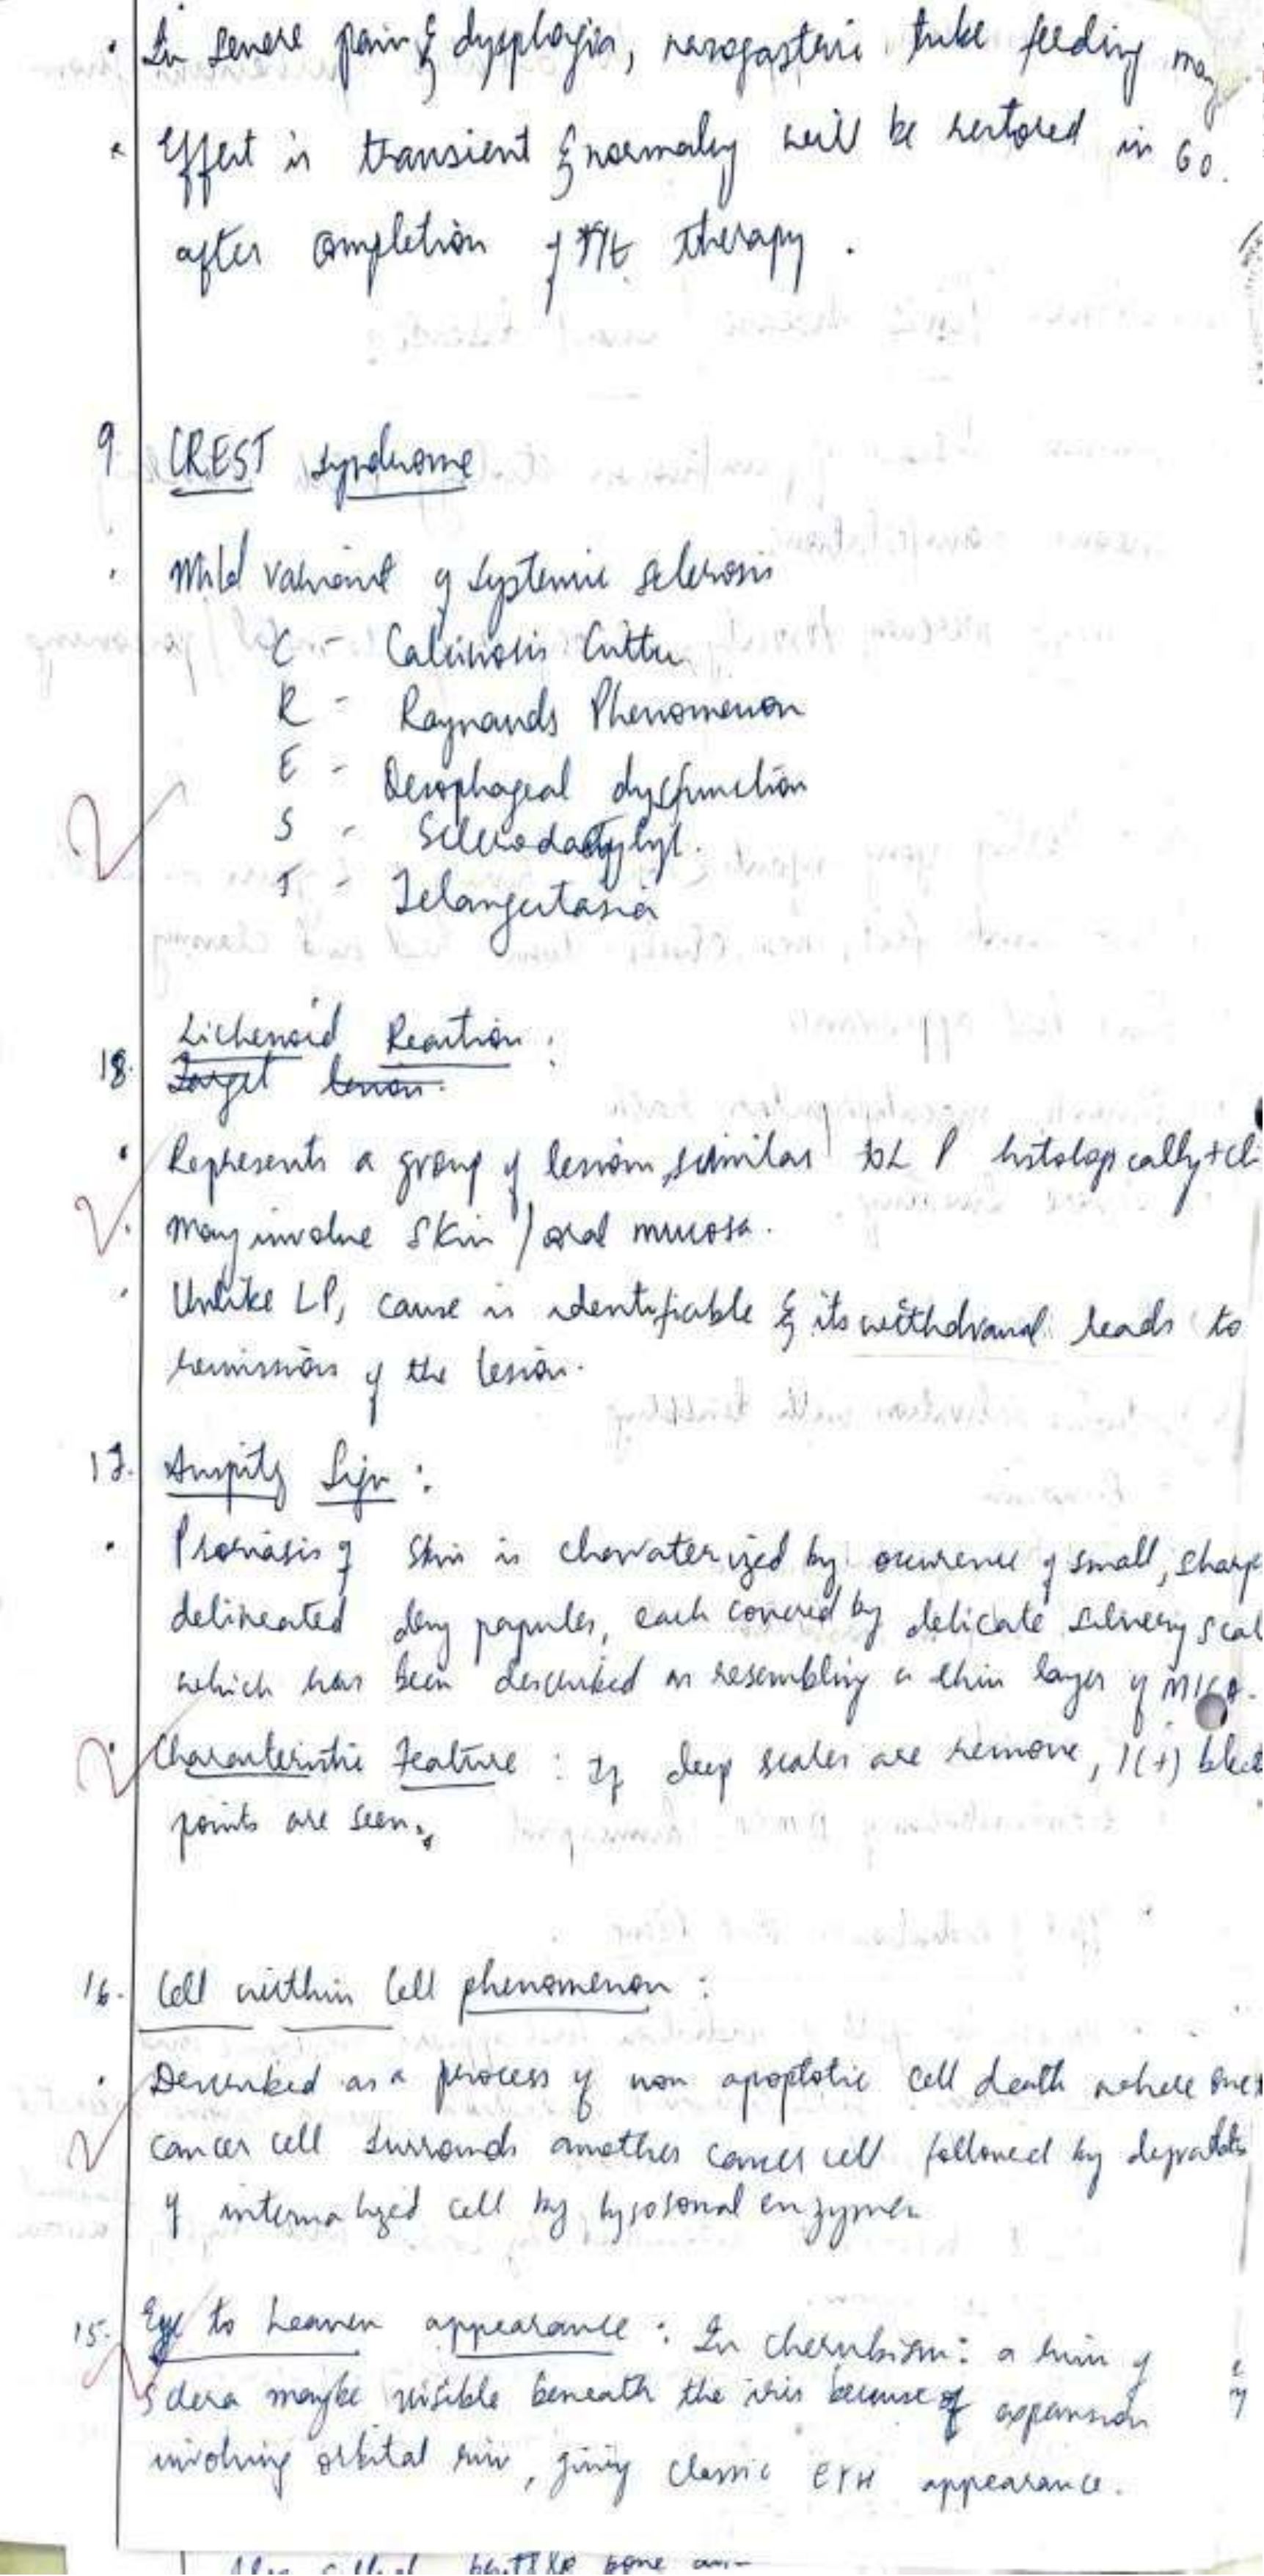 • In severe pain & dysphagia, nasogastric tube feeding may
• Effect is transient & normalcy will be restored in 60
after completion of therapy.
9 CREST syndrome
• Mild variant of systemic sclerosis
C - Calcinosis Cuttu
R - Raynauds Phenomenon
E - Oesophageal dysfunction
S - Sclerodactylyl.
T - Telangectasia
Lichenoid Reaction :
18. Target lesion.
• Represents a group of lesions, similar to L P histologically + cli
• May involve skin / oral mucosa.
• Unlike LP, cause is identifiable & its withdrawal leads to
remission of the lesion.
17. Auspitz Sign :
• Psoriasis of skin is charaterized by occurence of small, sharp
delineated dry papules, each covered by delicate silvery scal
which has been described as resembling a thin layer of MICA.
• Characteristic Feature : If deep scales are remove, 1(+) blee
points are seen.
16. Cell within Cell phenomenon :
• Described as a process of non apoptotic cell death where one
cancer cell surrounds another cancer cell followed by
of internalized cell by lysosonal enzymes
15. Eye to heaven appearance : In cherubism : a rim of
Sclera maybe visible beneath the iris because of expansion
involving orbital rim, giving classic ETH appearance.